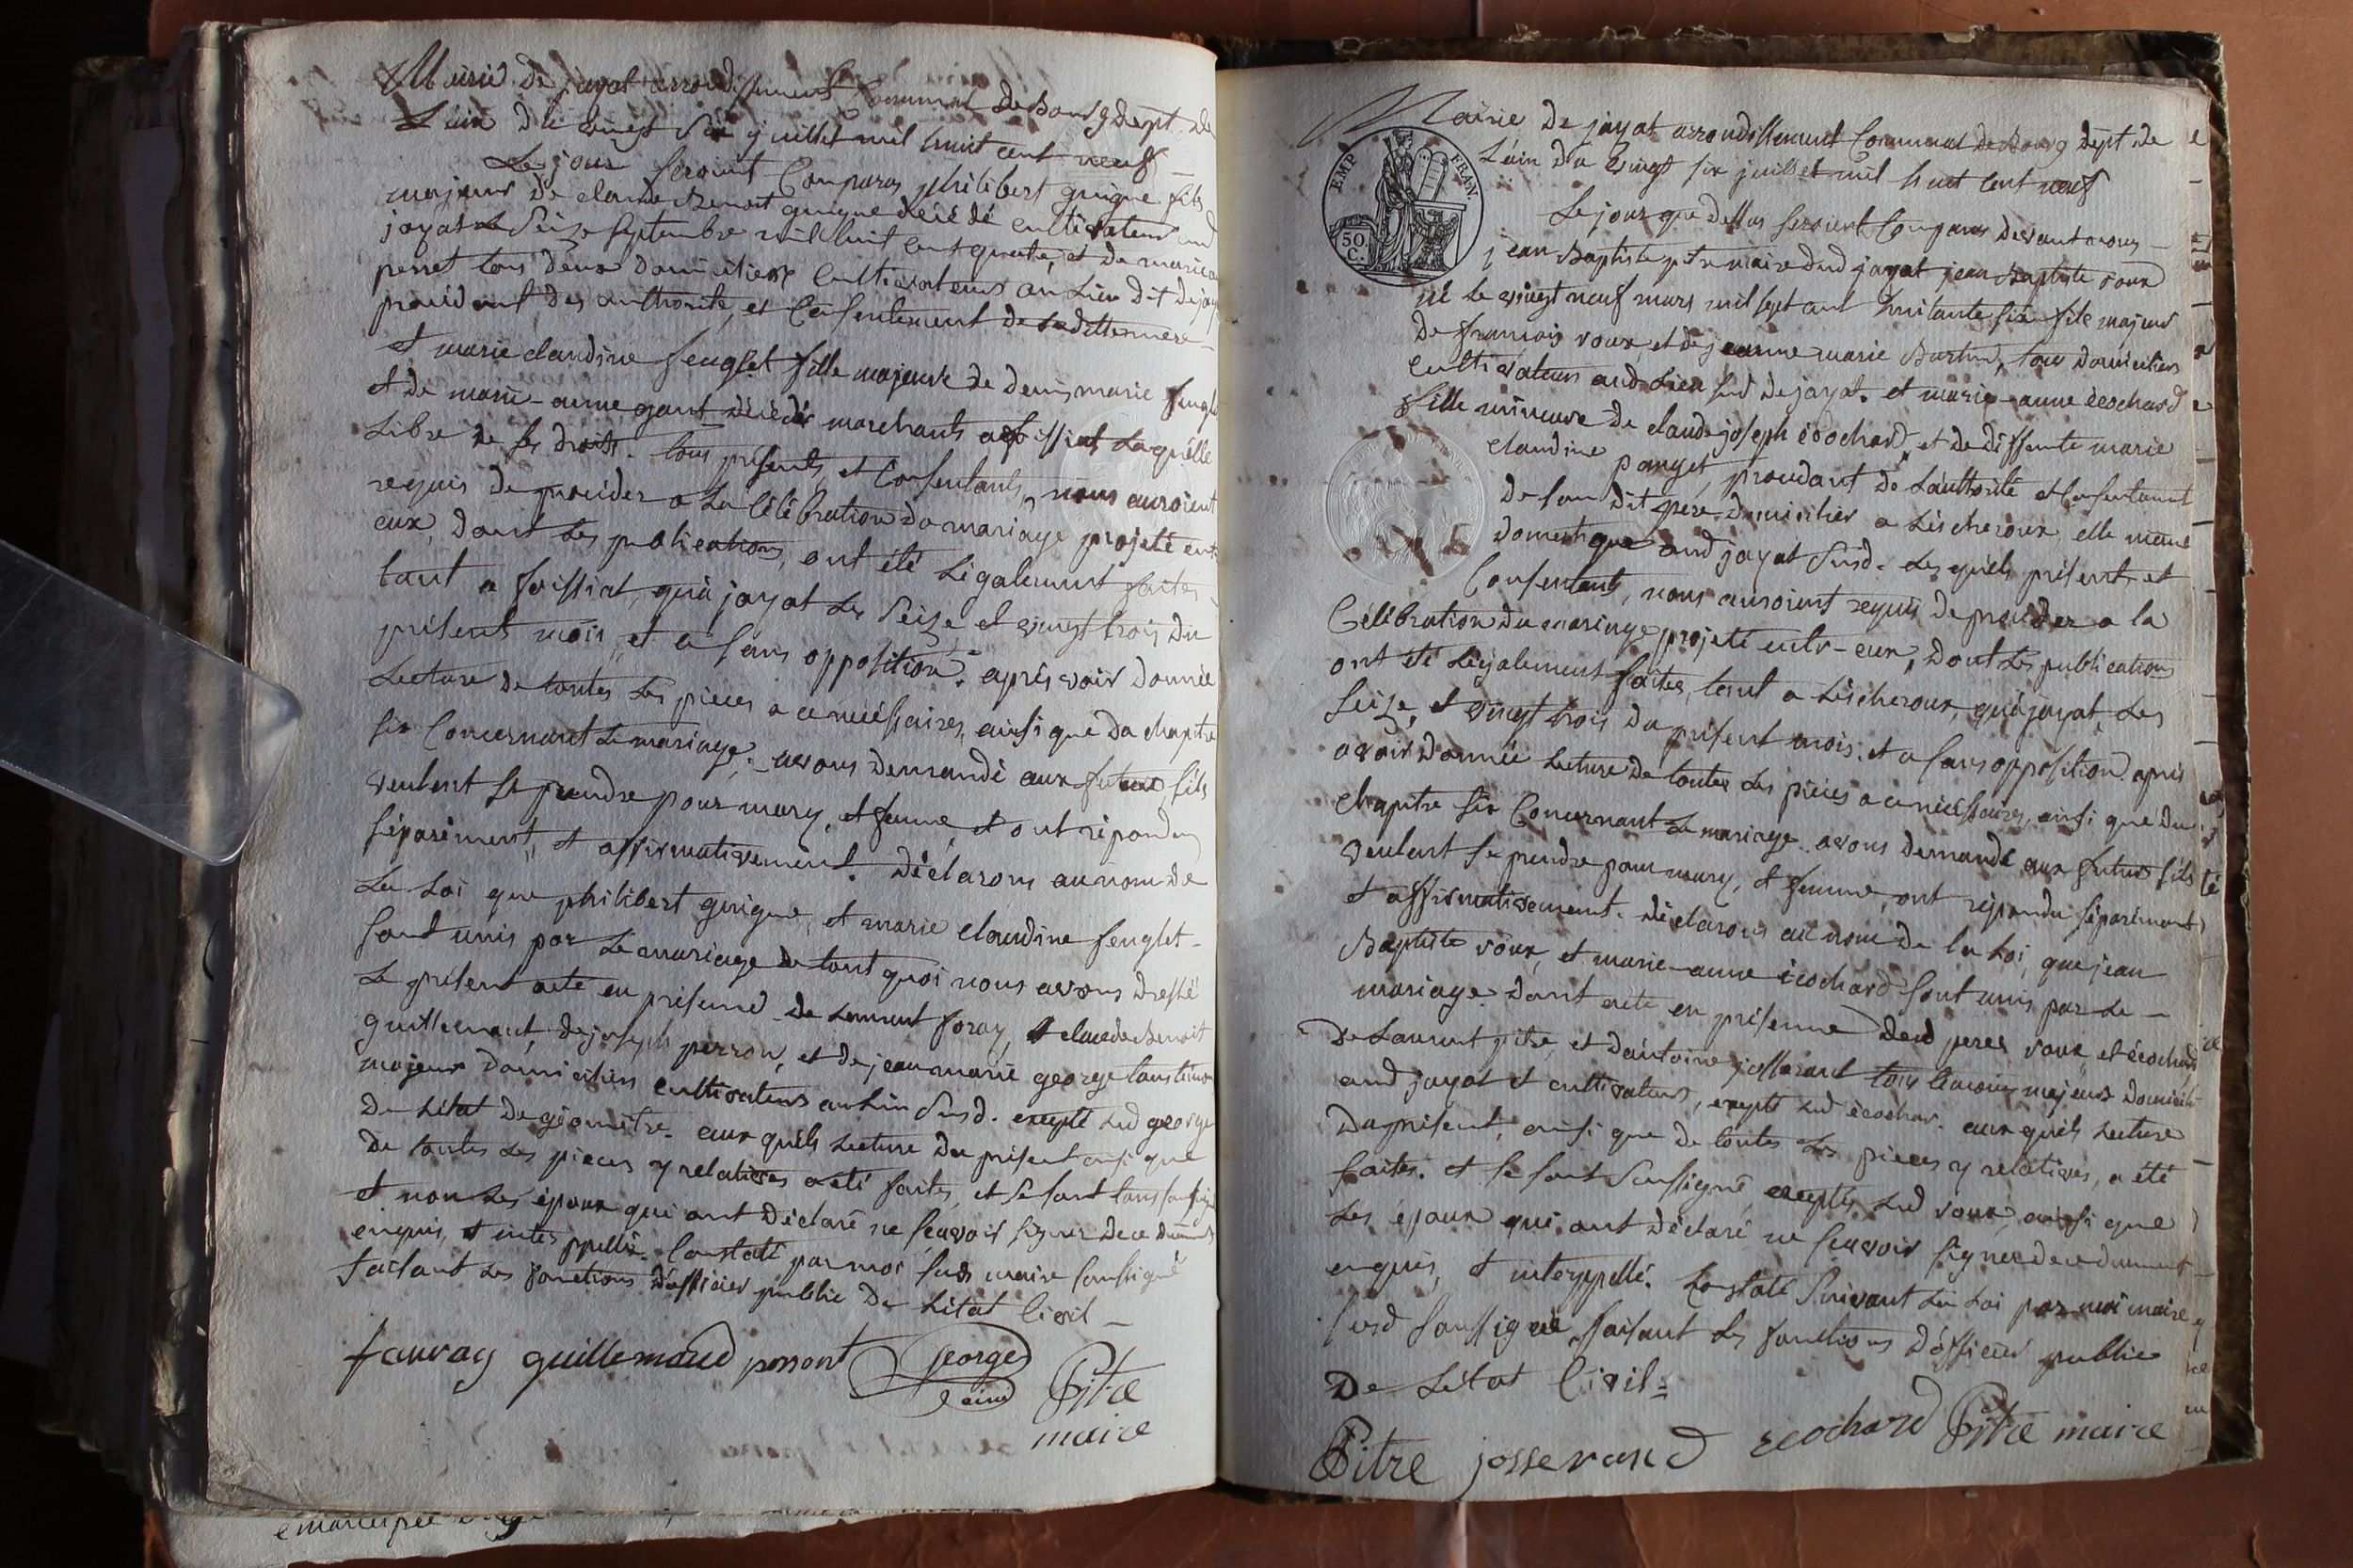 Mairie de jayat arrondissement Communal de Bourg dept de
L'ain du vingt six juillet mil huit cent neuf
Le jour seroient Comparus philibert guigue fils
majeur de claude Benoit guigue décédé cultivateur aud
jayat le seize septembre mil huit cent quatre, et de marie
perret tous deux domiciliers Cultivateurs au Lieu dit de jay
procédant des authorité, et Consentement de sadittemere
et marie claudine feuglet fille majeure de denis marie feugl
et de marie-anne gant décédés marchants a foissiat Laquélle
Libre de ses droits. tous présents, et Consentants, nous auroient
requis de procéder a La Célébration du mariage projeté entr
eux, dont Les publications, ont été Légalement faites
tant a foissiat, qu'à jayat Les seize et vingt trois du
présent mois, et a sans opposition. après avoir donnée
Lecture de toutes Les pieces a ce nécéssaires, ainsi que du chapitre
six Concernant Le mariage, avons demandé aux futurs s'ils
veulent se prendre pour mary, et femme, et ont répondu
séparément, et affirmativement. déclarons au nom de
La Loi que philibert guigue, et marie claudine feuglet
sont unis par Le mariage de tout quoi nous avons dressé
Le présent acte en présence de Laurent foray, claude Benoit
guillemaut, de joseph perron, et de jean marie george tous témo
majeurs domiciliers cultivateurs au Lieu susd. excepté Led george
de L'état de géomètre. aux quéls Lecture du présent ainsi que
de toutes Les pieces y relatives a été faites, et se sont tous sousigné
et non Les époux qui ont déclaré ne sçavoir signer de ce dument
enquis, et interppellé. Constaté par moi susd maire soussigné
faisant Les fonctions d'officier public de L'état Civil
fauray guillemaud perront George
Pitre
maire
Mairie de jayat arrondissement Communal de Bourg dept de
L'ain du vingt six juillet mil huit cent neuf
EMP FRAN.
50 C.
Le jour que dessus seroient Comparus devant nous
jean Baptiste pitre maire dud jayat jean Baptiste roux
né Le vingt neuf mars mil sept cent huitante six fils majeur
de francois roux, et de jeanne marie Burtin, tous domiciliers
Cultivateurs aud Lieu susd de jayat. et marie-anne écochard
fille mineure de claude joseph écochard, et de diffunte marie
claudine panget, procédant de L'authorité et Consentement
de son dit pere domicilier a Léscheroux, elle même
domestique aud jayat susd. Les quéls présents, et
Consentants, nous auroient requis de procéder a la
Célébration du mariage projeté entr-eux, dont Les publications
ont été Légalement faites, tant a Léscheroux, qu'à jayat, Les
seize, et vingt trois du présent mois. et a sans opposition. après
avoir donnée Lecture de toutes Les pieces a ce nécéssaires, ainsi que du
chapitre six Concernant Le mariage. avons demandé aux futurs s'ils
veulent se prendre pour mary, et femme, ont répondu séparément
et affirmativement. déclarons au nom de la Loi, que jean
Baptiste roux, et marie-anne écochard sont unis par Le
mariage. dont acte en présence desd peres roux et écochard
de Laurent pitre, et d'antoine josserant tous témoins majeurs domicili
aud jayat et cultivateurs, excepté Led écochar. aux quéls Lecture
du présent, ainsi que de toutes Les pieces y relatives, a été
faites. et se sont sousigné, exceptés Led roux, ainsi que
Les époux qui ont déclaré ne sçavoir signer de ce dument
enquis, et interppellé. Constaté suivant La Loi par moi maire
susd soussigné faisant Les fonctions d'officier public
de L'état Civil.
Pitre josserand ecochard Pitre maire
emancipée